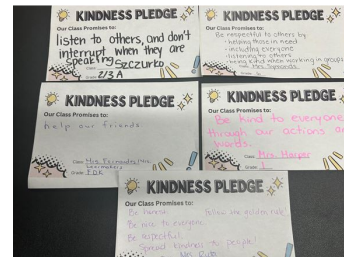 KINDNESS PLEDGE
Our Class Promises to:
listen to others, and don't
interrupt when they are
speaking Szczurko
Class:
Grade: 2/3 A
KINDNESS PLEDGE
Our Class Promises to:
Be respectful to others by
- helping those in need
- including everyone
- listening to others
- being kind when working in groups
Class: Mrs.
KINDNESS PLEDGE
Our Class Promises to:
help our friends
Class: Mrs. Fernandes
Grade: FDK
KINDNESS PLEDGE
Our Class Promises to:
Be kind to everyone
through our actions a
words.
Class: Mrs. Harper
Grade: 1
KINDNESS PLEDGE
Our Class Promises to:
Be honest. follow the golden rule
Be nice to everyone
Be respectful.
Spread kindness to people!
Mrs.